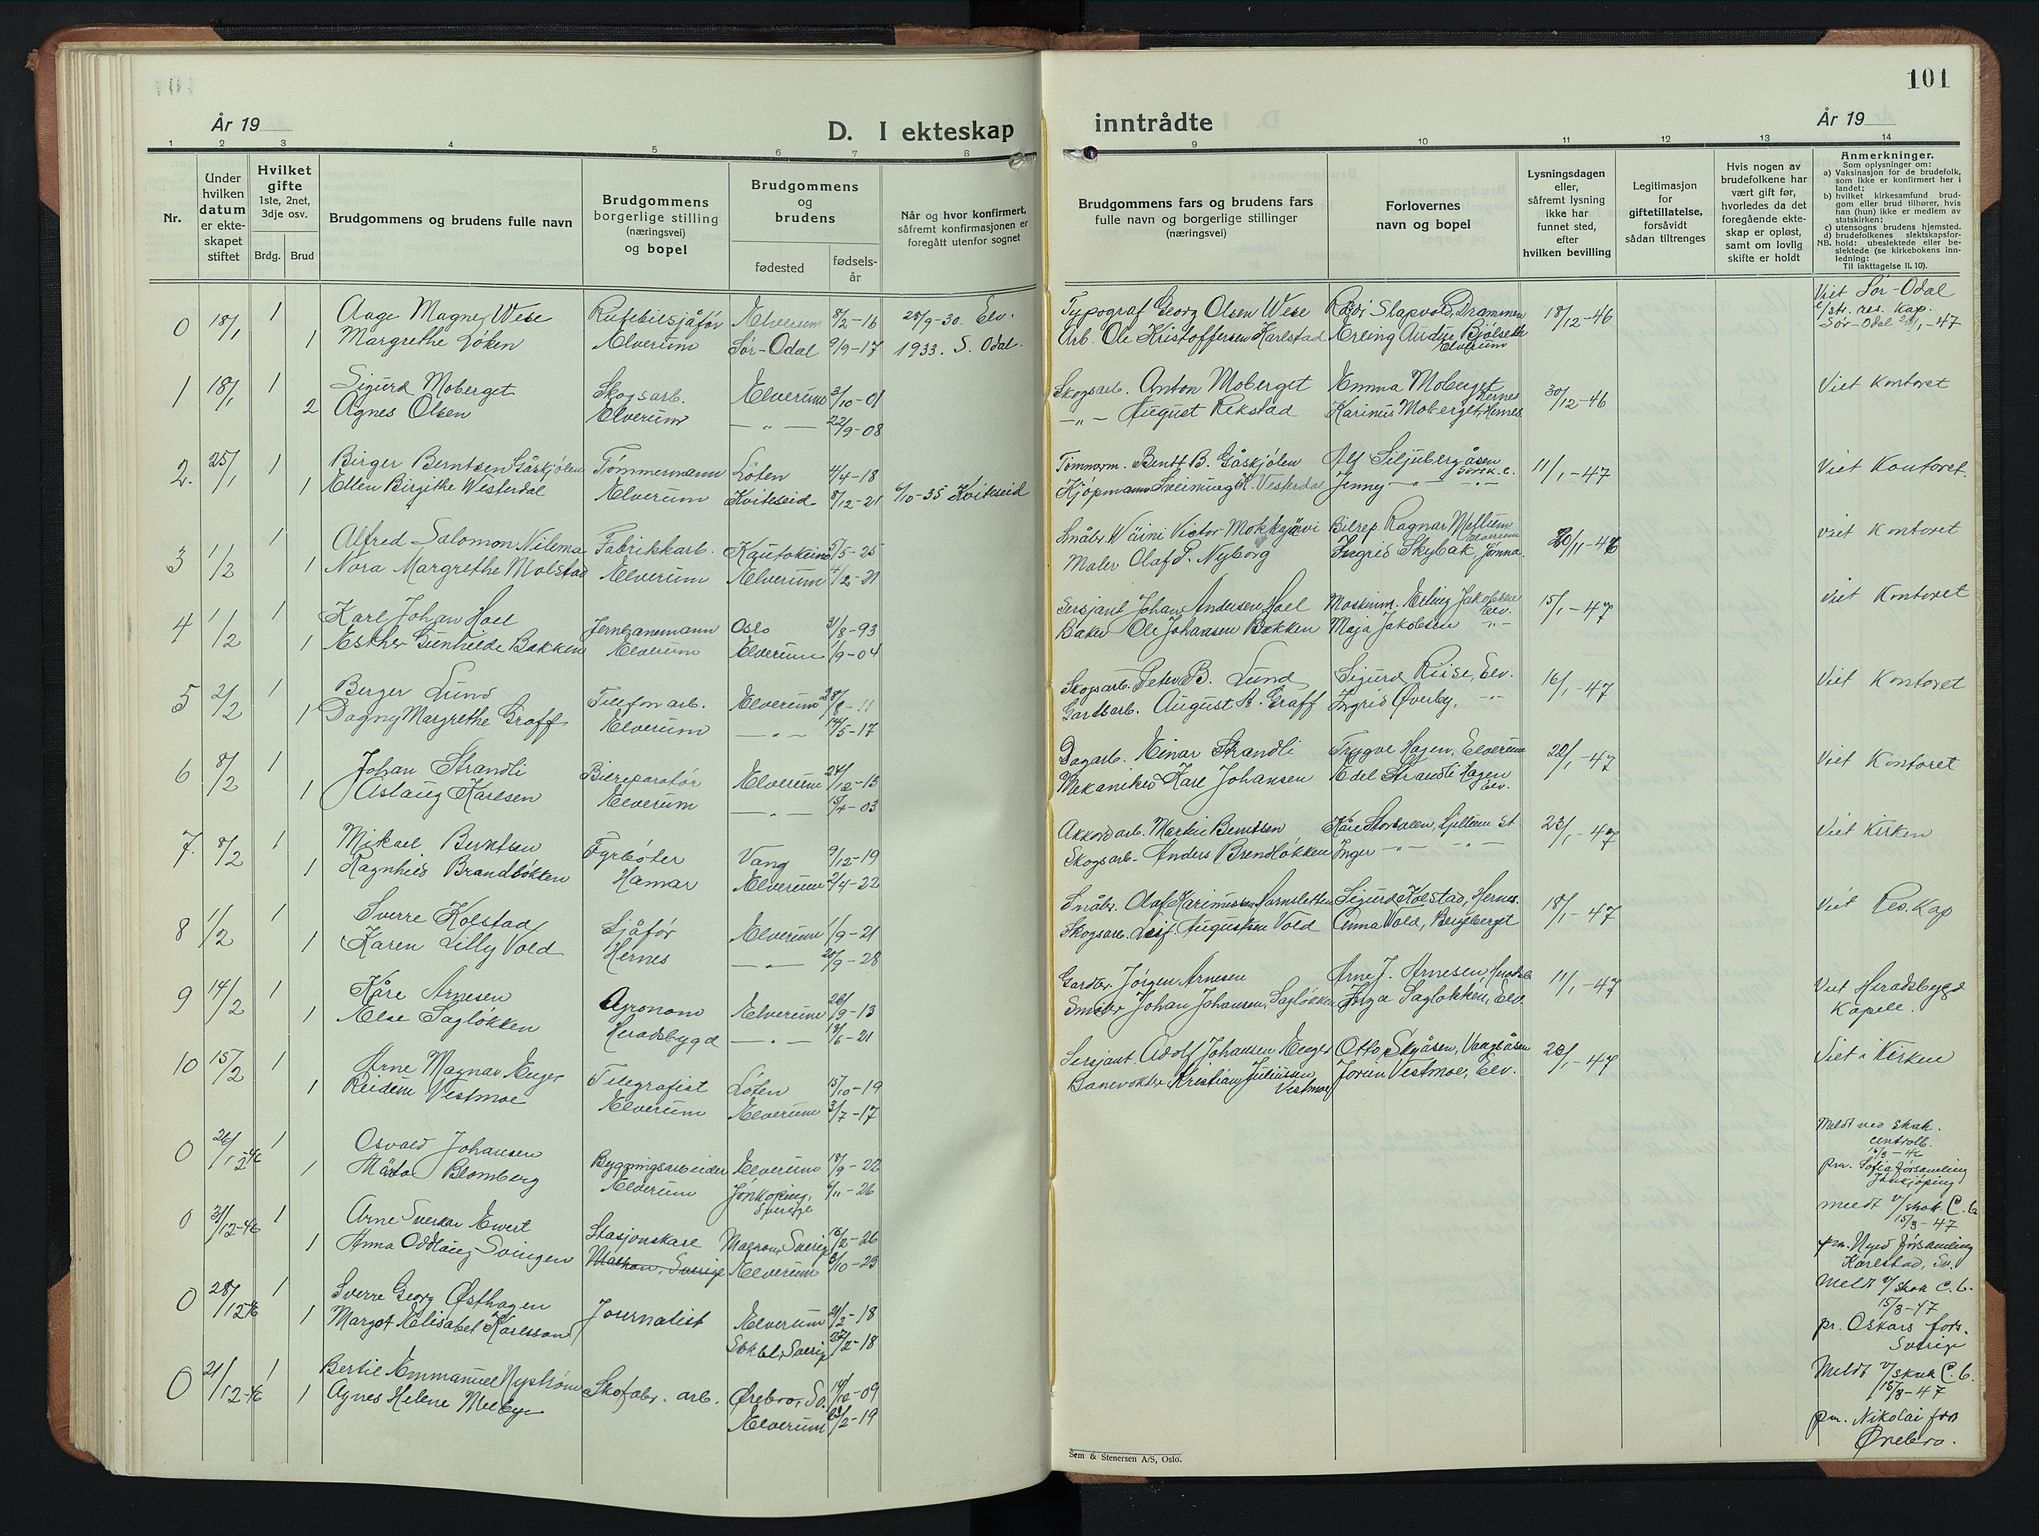 101
År 19
D. I ekteskap
inntrådte
År 19
1 2 3 4 5 6 7 8 9 10 11 12 13 14
Nr.
Under hvilken datum er ekteskapet stiftet
Hvilket gifte 1ste, 2net, 3dje osv.
Brdg. Brud
Brudgommens og brudens fulle navn
Brudgommens borgerlige stilling (næringsvei) og bopel
Brudgommens og brudens
fødested
fødselsår
Når og hvor konfirmert, såfremt konfirmasjonen er foregått utenfor sognet
Brudgommens fars og brudens fars fulle navn og borgerlige stillinger (næringsvei)
Forlovernes navn og bopel
Lysningsdagen eller, såfremt lysning ikke har funnet sted, efter hvilken bevilling
Legitimasjon for giftetillatelse, forsåvidt sådan tiltrenges
Hvis nogen av brudefolkene har vært gift før, hvorledes da det foregående ekteskap er opløst, samt om lovlig skifte er holdt
Anmerkninger.
Som oplysninger om:
a) Vaksinasjon for de brudefolk, som ikke er konfirmert her i landet;
b) hvilket kirkesamfund brudgom eller brud tilhører, hvis han (hun) ikke er medlem av statskirken;
c) utensogns brudens hjemsted.
d) brudefolkenes slektskapsforhold: ubeslektede eller beslektede (se kirkebokens innledning:
NB.
Til iakttagelse II. 10).
0 18/1 1 Aage Magne Wese Rutebilsjåfør Elverum 8/2-16 28/9-30. Elv. Typograf Georg Olsen Wese Drammen 18/12-46 Viet Sør-Odal
1 Margrethe Løken Elverum Sør-Odal 9/9-17 1933. S. Odal. Arb. Ole Kristoffersen Karlstad Erling Elverum v/str. res. kap. Sør-Odal -47
1 18/1 1 Sigurd Moberget Skogsarb. Elverum 3/10-01 Skogsarb. Anton Moberget Emma Moberget Hernes 30/12-46 Viet Kontoret
2 Agnes Olsen Elverum - " - 22/9-08 - " - August Rekstad Karinus Moberget, Hernes
2. 25/1 1 Birger Berntsen Gåskjølen Tømmermann Løten 4/4-18 Tømmerm. Berndt B. Gåskjølen Alf Siljuberg 11/1-47 Viet Kontoret.
1 Ellen Birgithe Vesterdal Elverum Kviteseid 8/12-21 6/10-35 Kviteseid Kjøpmann Sveinung K. Vesterdal Jenny - " - - " -
3 1/2 1 Alfred Salomon Nilema Fabrikkarb. Kautokeino 5/5-25 Småbr. Bilrep. Ragnar Elverum 20/11-46 Viet Kontoret
1 Nora Margrethe Molstad Elverum Elverum 4/2-21 Maler Olaf P. Nyborg Ingrid Skybak, Jømna
4 1/2 1 Karl Johan Hoel Jernbanemann Oslo 31/8-93 Sersjant Johan Andersen Hoel Maskinm. Erling Jakobsen Elv. 15/1-47 Viet Kontoret
1 Esther Gunhilde Bakken Elverum Elverum 1/9-04 Baker Ole Johansen Bakken Maja Jakobsen - " -
5 2/2 1 Berger Lund Telefonarb. Elverum 28/8-11 Skogsarb. Peter B. Lund Sigurd Riise, Elv. 16/1-47 Viet Kontoret
1 Dagny Margrethe Graff Elverum - " - 14/5-17 Gardsarb. August A. Graff Ingrid Øverby, - " -
6 8/2 1 Johan Strandli Bilreparatør Elverum 24/12-13 Dagarb. Einar Strandli Trygve Hagen, Elverum 22/1-47 Viet Kontoret
1 Aslaug Karlsen Elverum - " - 15/4-03 Mekaniker Karl Johansen Edel Strandli Hagen Elv.
7. 8/2 1 Mikael Berntsen Fyrbøter Vang 9/12-19 Akkordarb. Martin Berntsen Kåre Storsveen, 23/1-47 Viet Kirken
1 Ragnhild Brandløkken Hamar Elverum 2/4-22 Skogsarb. Anders Brendløkken Inger - " - - " -
8 1/2 1 Sverre Kolstad Sjåfør Elverum 1/9-21 Småbr. Olaf Karinussen Sigurd Kolstad, Hernes 18/1-47 Viet Res. Kap
1 Karen Lilly Vold Hernes - " - 20/9-28 Skogsarb. Leif Augustsen Vold Anna Vold, Bergeberget
9 14/2 1 Kåre Arnesen Agronom Elverum 26/9-13 Gardbr. Jørgen Arnesen Arne J. Arnesen, 11/1-47 Viet Heradsbygd Kapell.
1 Else Sagløkken Heradsbygd - " - 13/6-21 Johan Johansen, Sagløkken Inga Sagløkken, Elv
10 15/2 1 Arne Magnar Enger Telegrafist Løten 15/10-19 Sersjant Adolf Johansen Enger Otto Skyåsen, 23/1-47 Viet i Kirken
1 Reidun Vestmoe Elverum Elverum 3/7-17 Banevokter Kristian Juliussen Vestmoe Jorun Vestmoe, Elv.
0 26/12-46 1 Osvald Johansen Bygningsarbeider Elverum 18/9-22 Meldt ved skat. centralb. 15/3-47
1 Märta Blomberg Elverum Jönköping, Sverige 6/11-26 pr. Sofia församling Jönköping
0 31/12-46 1 Arne Sverker Ewert Stasjonskarl Sverige 18/2-26 meldt v/skat. C.b. 15/3-47
1 Anna Oddlaug Svingen Sverige Elverum 3/10-23 pr. Nyed församling Karlstad, Sv.
0 28/12-46 1 Sverre Georg Østhagen Journalist Elverum 21/2-18 Meldt v/skat C.b. 15/3-47
1 Margot Elisabet Karlsson Sverige 22/2-18 pr. Oskars fors. Sverige
0 21/12-46 1 Bertil Emmanuel Nystrøm Skofabr. arb. Ørebro, Sv. 14/12-09 Meldt v/skat C.b. 15/3-47
1 Agnes Helene Melbye Elverum 23/2-19 pr. Nikolai fors Ørebro.
Sem & Stenersen A/S, Oslo.